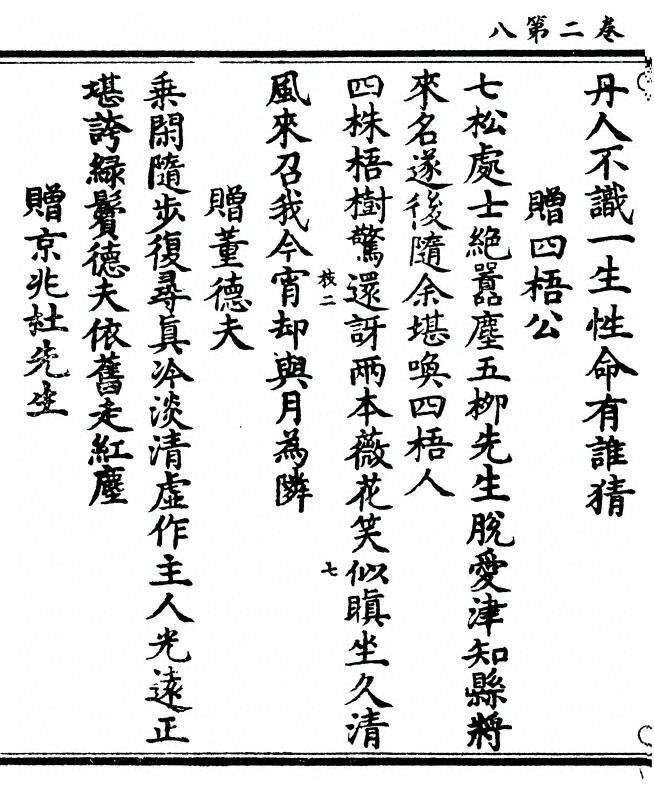 卷二第八
丹人不識一生性命有誰猜
贈四梧公
七松處士絕囂塵五柳先生脫愛津知縣將
來名遂後隨余堪喚四梧人
四株梧樹驚還訝兩本薇花笑似瞋坐久清
枝二
七
風來召我今宵却與月為隣
贈董德夫
乘閑隨步復尋真冷淡清虛作主人光遠正
堪誇緑鬢德夫依舊走紅塵
贈京兆杜先生